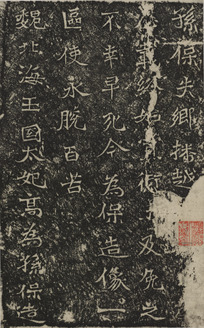 孫保失鄉播越
終始衛及免之
不幸早死今為保造像一
區使永脫百苦
魏北海王国太妃高為孫保造